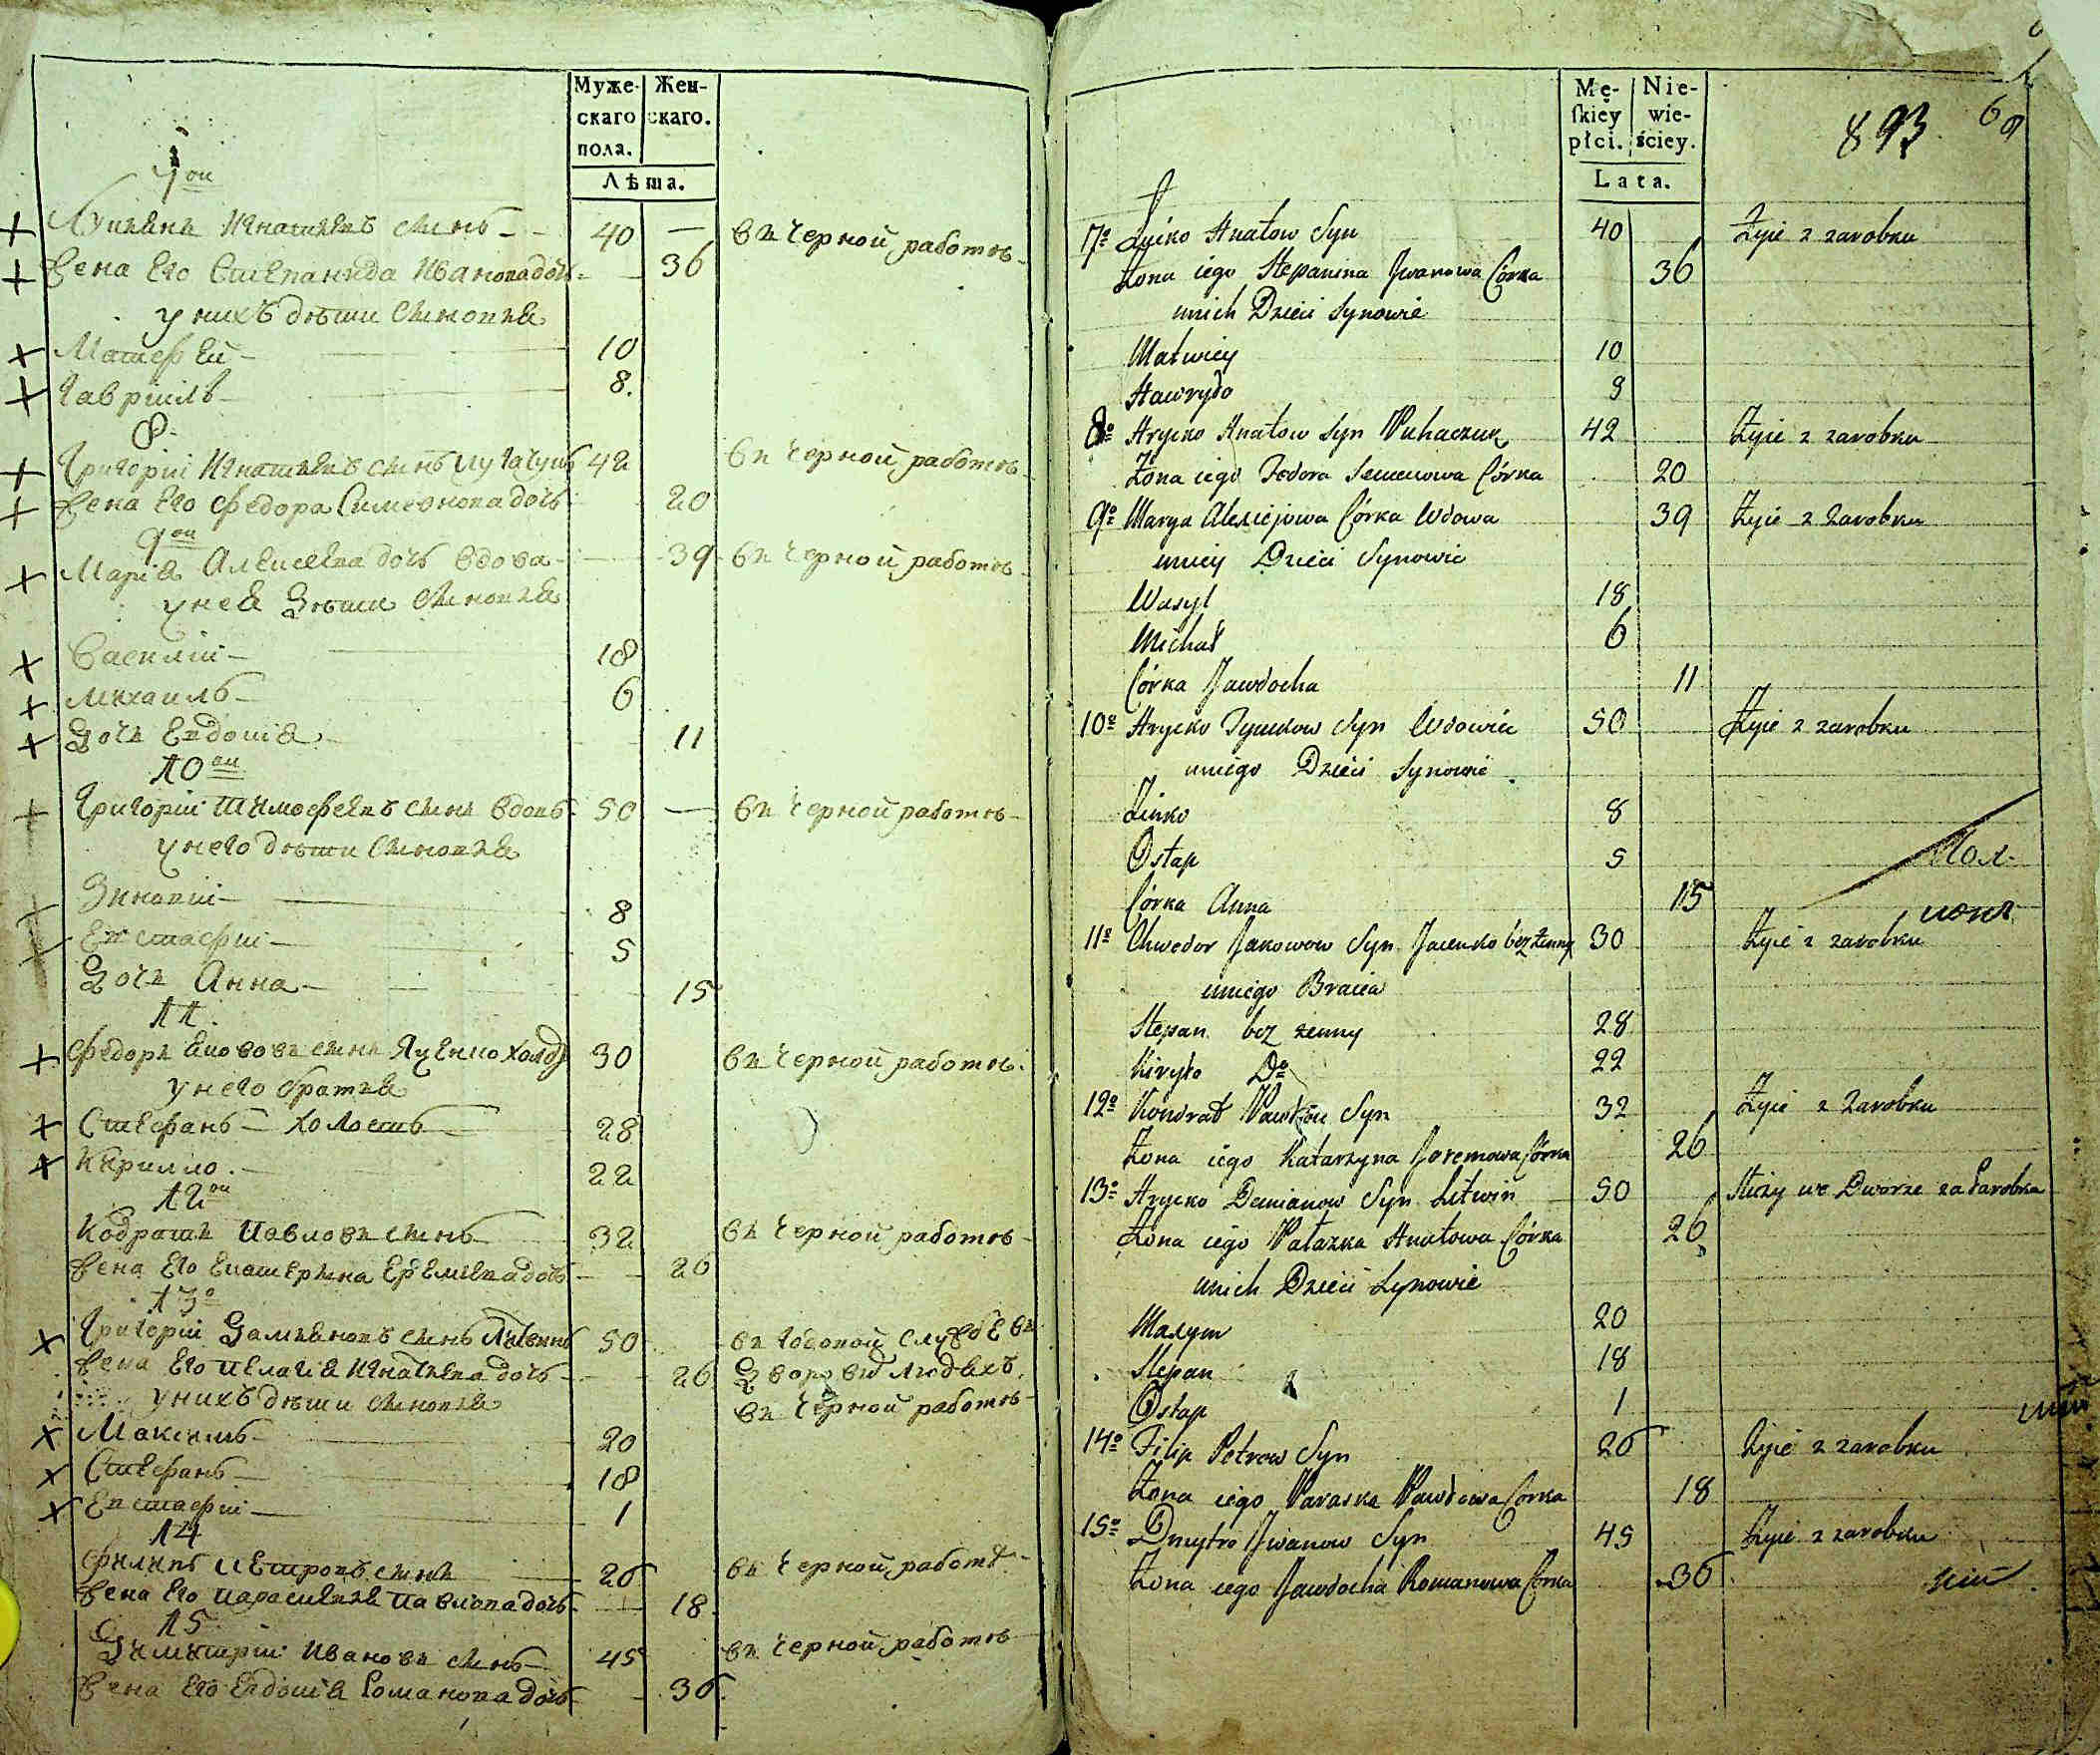 Муже-
скаго
пола.
Жен-
скаго.
Лѣта.
7ои
Лукьянъ Игнатьевъ сынъ 40 — въ черной работѣ
Жена Его Степанида Иванова дочь 36
у нихъ дѣти сыновья
Матфей 10
Гавріилъ 8.
8.
Григорій Игнатьевъ сынъ 42 въ черной работѣ
Жена Его Федора Симеонова дочь 20
9ои
Марія Алексеева дочь вдова 39 въ черной работѣ
у нея дѣти сыновья
Василій 18
Михаилъ 6
Дочь Евдокія 11
10ои
Григорій Тимофеевъ сынъ вдовъ 50 — въ черной работѣ
у него дѣти сыновья
Зиновій 8
Евстафій 5
Дочь Анна 15
11.
Федоръ Якововъ сынъ Яценко 30 въ черной работѣ
у него братья
Стефанъ холостъ 28
Кирилло. 22
12ои
Кодратъ Павловъ сынъ 32 въ черной работѣ
Жена Его Екатерина Еремеева дочь 26
13о
Григорій Дамьяновъ сынъ Литвинъ 50 въ годовой службѣ въ
Жена Его Пелагія Игнатьева дочь 26 дворовыхъ людяхъ.
у нихъ дѣти сыновья въ черной работѣ
Максимъ 20
Стефанъ 18
Евстафій 1
14
Филипъ Петровъ сынъ 26 въ черной работѣ
Жена Его Параскевья Павлова дочь 18.
15.
Димитрій Ивановъ сынъ 45 въ черной работѣ
Жена Его Евдокія Романова дочь 36.
Mę-
skiey
płci.
Nie-
wie-
ściey.
Lata.
893
69
7o Łućko Hnatow Syn 40 Żyie z zarobku
Żona iego Stepanina Jwanowa Córka 36
unich Dzieci Synowie
Matwiey 10
Hawryło 9
8o Hrycko Hnatow Syn Puhaczuk 42 Żyie z zarobku
Żona iego Fedora Semenowa Córka 20
9o Marya Alexiejowa Córka Wdowa 39 Żyie z zarobku
uniey Dzieci Synowie
Wasyl 18
Michał 6
Córka Jawdocha 11
10o Hrycko Tymkow Syn Wdowiec 50 Żyie z zarobku
uniego Dzieci Synowie
Zinko 8
Ostap 5
Córka Anna 15
11o Chwedor Jakowow Syn Jacenko bez żenny 30 Żyie z zarobku
uniego Bracia
Stepan bez żenny 28
Kiryło Do 22
12o Kondrat Pawłow Syn 32 Żyie z zarobku
Żona iego Katarzyna Jeremowa Córka 26
13o Hrycko Demianow Syn Litwin 50 Służy we Dworze za Parobka
Żona iego Pałazka Hnatowa Córka 26
unich Dzieci Synowie
Maxym 20
Stepan 18
Ostap 1
14o Filip Petrow Syn 26 Żyie z zarobku
Żona iego Paraska Pawłowa Córka 18
15o Dmytro Jwanow Syn 45 Żyie z zarobku
Żona iego Jawdocha Romanowa Córka 36